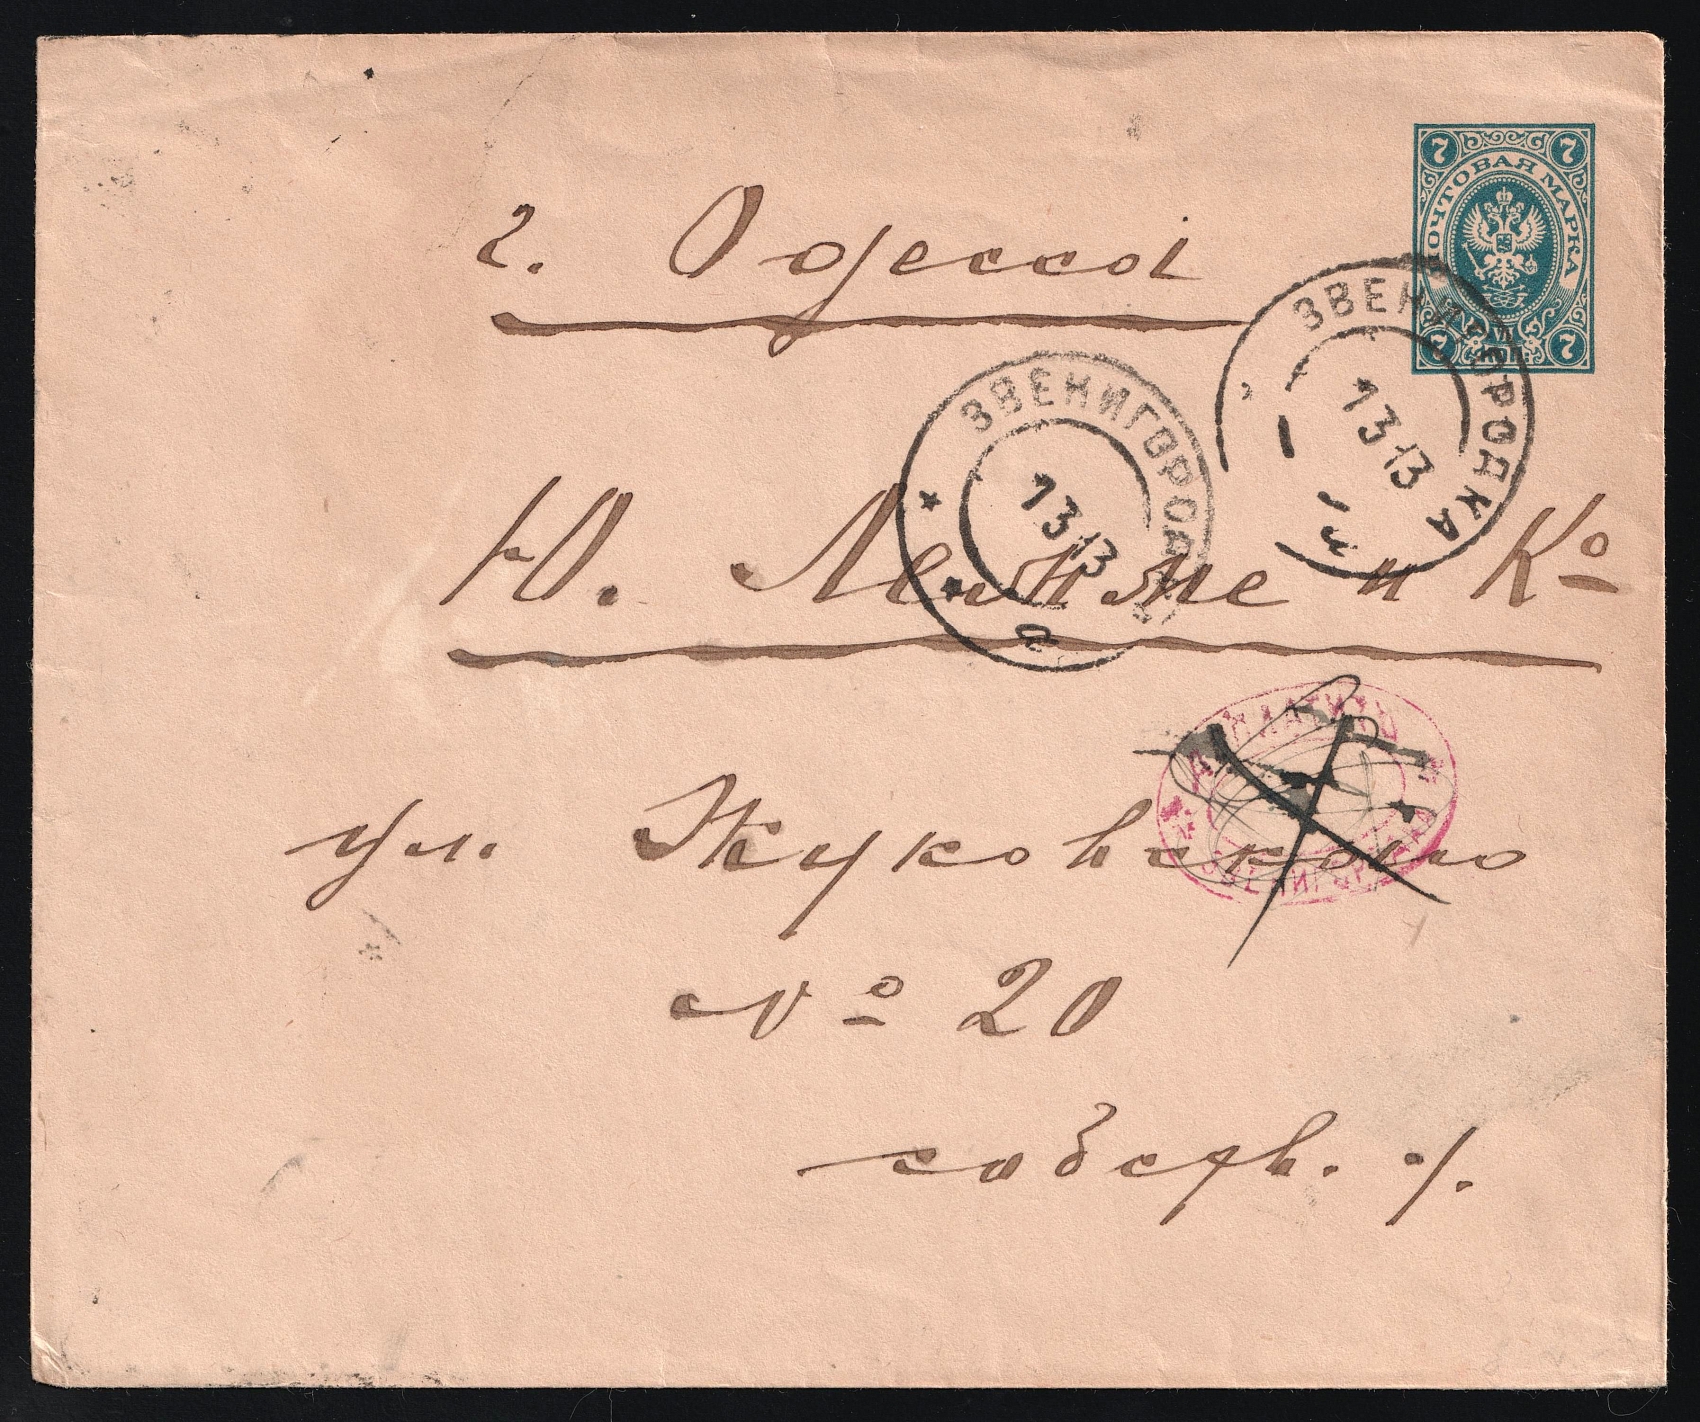 7 7
ПОЧТОВАЯ МАРКА
7 КОП. 7
г. Одесса
ЗВЕНИГОРОДКА
1 3 13
ЗВЕНИГОРОДКА
1 3 13
а
Ю. и Ко
ДОПЛАТИТЬ
ЗВЕНИГОРОДКА
ул. Жуковского
№ 20
собств. д.